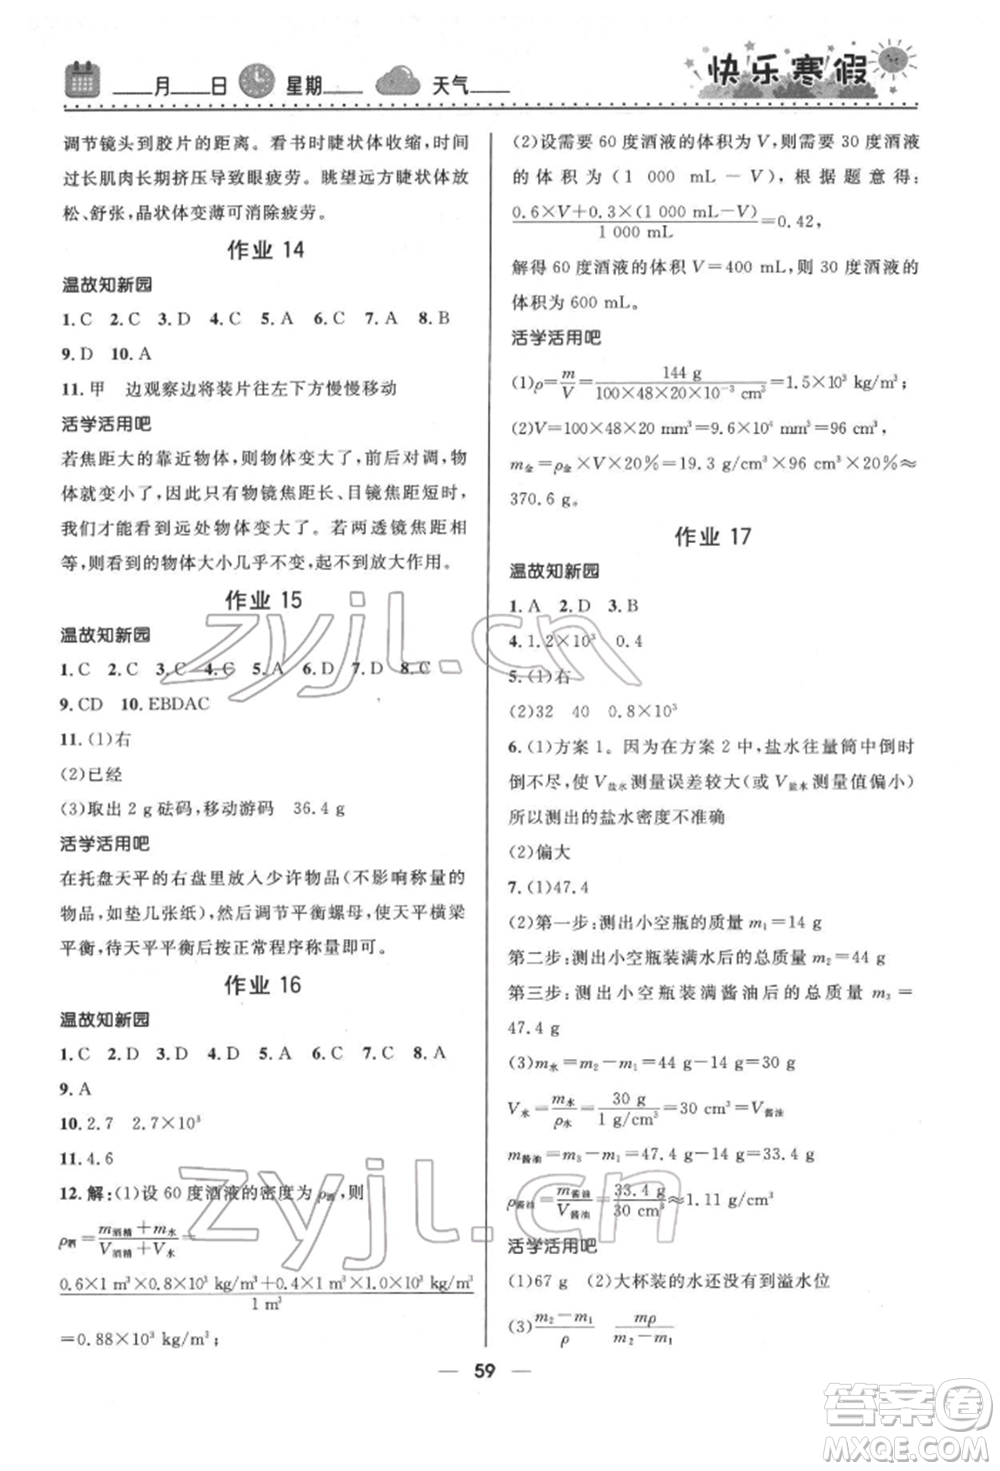 ____月____日 星期____ 天气____
快乐寒假
调节镜头到胶片的距离。看书时睫状体收缩,时间
过长肌肉长期挤压导致眼疲劳。眺望远方睫状体放
松、舒张,晶状体变薄可消除疲劳。
作业 14
温故知新园
1.C 2.C 3.D 4.C 5.A 6.C 7.A 8.B
9.D 10.A
11.甲 边观察边将装片往左下方慢慢移动
活学活用吧
若焦距大的靠近物体,前后对调,物
体就变小了,因此只有物镜焦距长、目镜焦距短时,
我们才能看到远处物体变大了。若两透镜焦距相
等,则看到的物体大小几乎不变,起不到放大作用。
作业 15
温故知新园
1.C 2.C 3.C 4.C 5.A 6.D 7.D 8.C
9.CD 10.EBDAC
11.(1)右
(2)已经
(3)取出 2 g 砝码,移动游码 36.4 g
活学活用吧
在托盘天平的右盘里放入少许物品(不影响称量的
物品,如垫几张纸),然后调节平衡螺母,使天平横梁
平衡,待天平平衡后按正常程序称量即可。
作业 16
温故知新园
1.C 2.D 3.D 4.D 5.C 6.C 7.B 8.A
9.A
10.2.7 2.7×10³
11.4.6
12.解:(1)设 60 度酒液的密度为 ρ酒,则
ρ酒=(m酒精+m水)/(V酒精+V水)=
(0.6×1 m³×0.8×10³ kg/m³+0.4×1 m³×1.0×10³ kg/m³)/(1 m³)
=0.88×10³ kg/m³;
(2)设需要 60 度酒液的体积为 V,则需要 30 度酒液
的体积为(1 000 mL-V),根据题意得:
(0.6×V+0.3×(1 000 mL-V))/(1 000 mL)=0.42,
解得 60 度酒液的体积 V=400 mL,则 30 度酒液的
体积为 600 mL。
活学活用吧
(1)ρ=m/V=144 g/(100×48×20×10⁻³ cm³)=1.5×10³ kg/m³;
(2)V=100×48×20 mm³=9.6×10⁴ mm³=96 cm³,
m金=ρ金×V×20%=19.3 g/cm³×96 cm³×20%≈
370.6 g。
作业 17
温故知新园
1.A 2.D 3.B
4.1.2×10³ 0.4
5.(1)右
(2)32 40 0.8×10³
6.(1)方案 1。因为在方案 2 中,盐水往量筒中倒时
倒不尽,使 V盐水测量误差较大(或 V盐水测量值偏小)
所以测出的盐水密度不准确
(2)偏大
7.(1)47.4
(2)第一步:测出小空瓶的质量 m₁=14 g
第二步:测出小空瓶装满水后的总质量 m₂=44 g
第三步:测出小空瓶装满酱油后的总质量 m₃=
47.4 g
(3)m水=m₂-m₁=44 g-14 g=30 g
V水=m水/ρ水=30 g/(1 g/cm³)=30 cm³=V酱油
m酱油=m₃-m₁=47.4 g-14 g=33.4 g
ρ酱油=m酱油/V酱油=33.4 g/30 cm³≈1.11 g/cm³
活学活用吧
(1)67 g (2)大杯装的水还没有到溢水位
(3)(m₂-m₁)/ρ mρ/(m₂-m₁)
59
zyjl.cn
zyjl.cn
答案圈
MXQE.COM